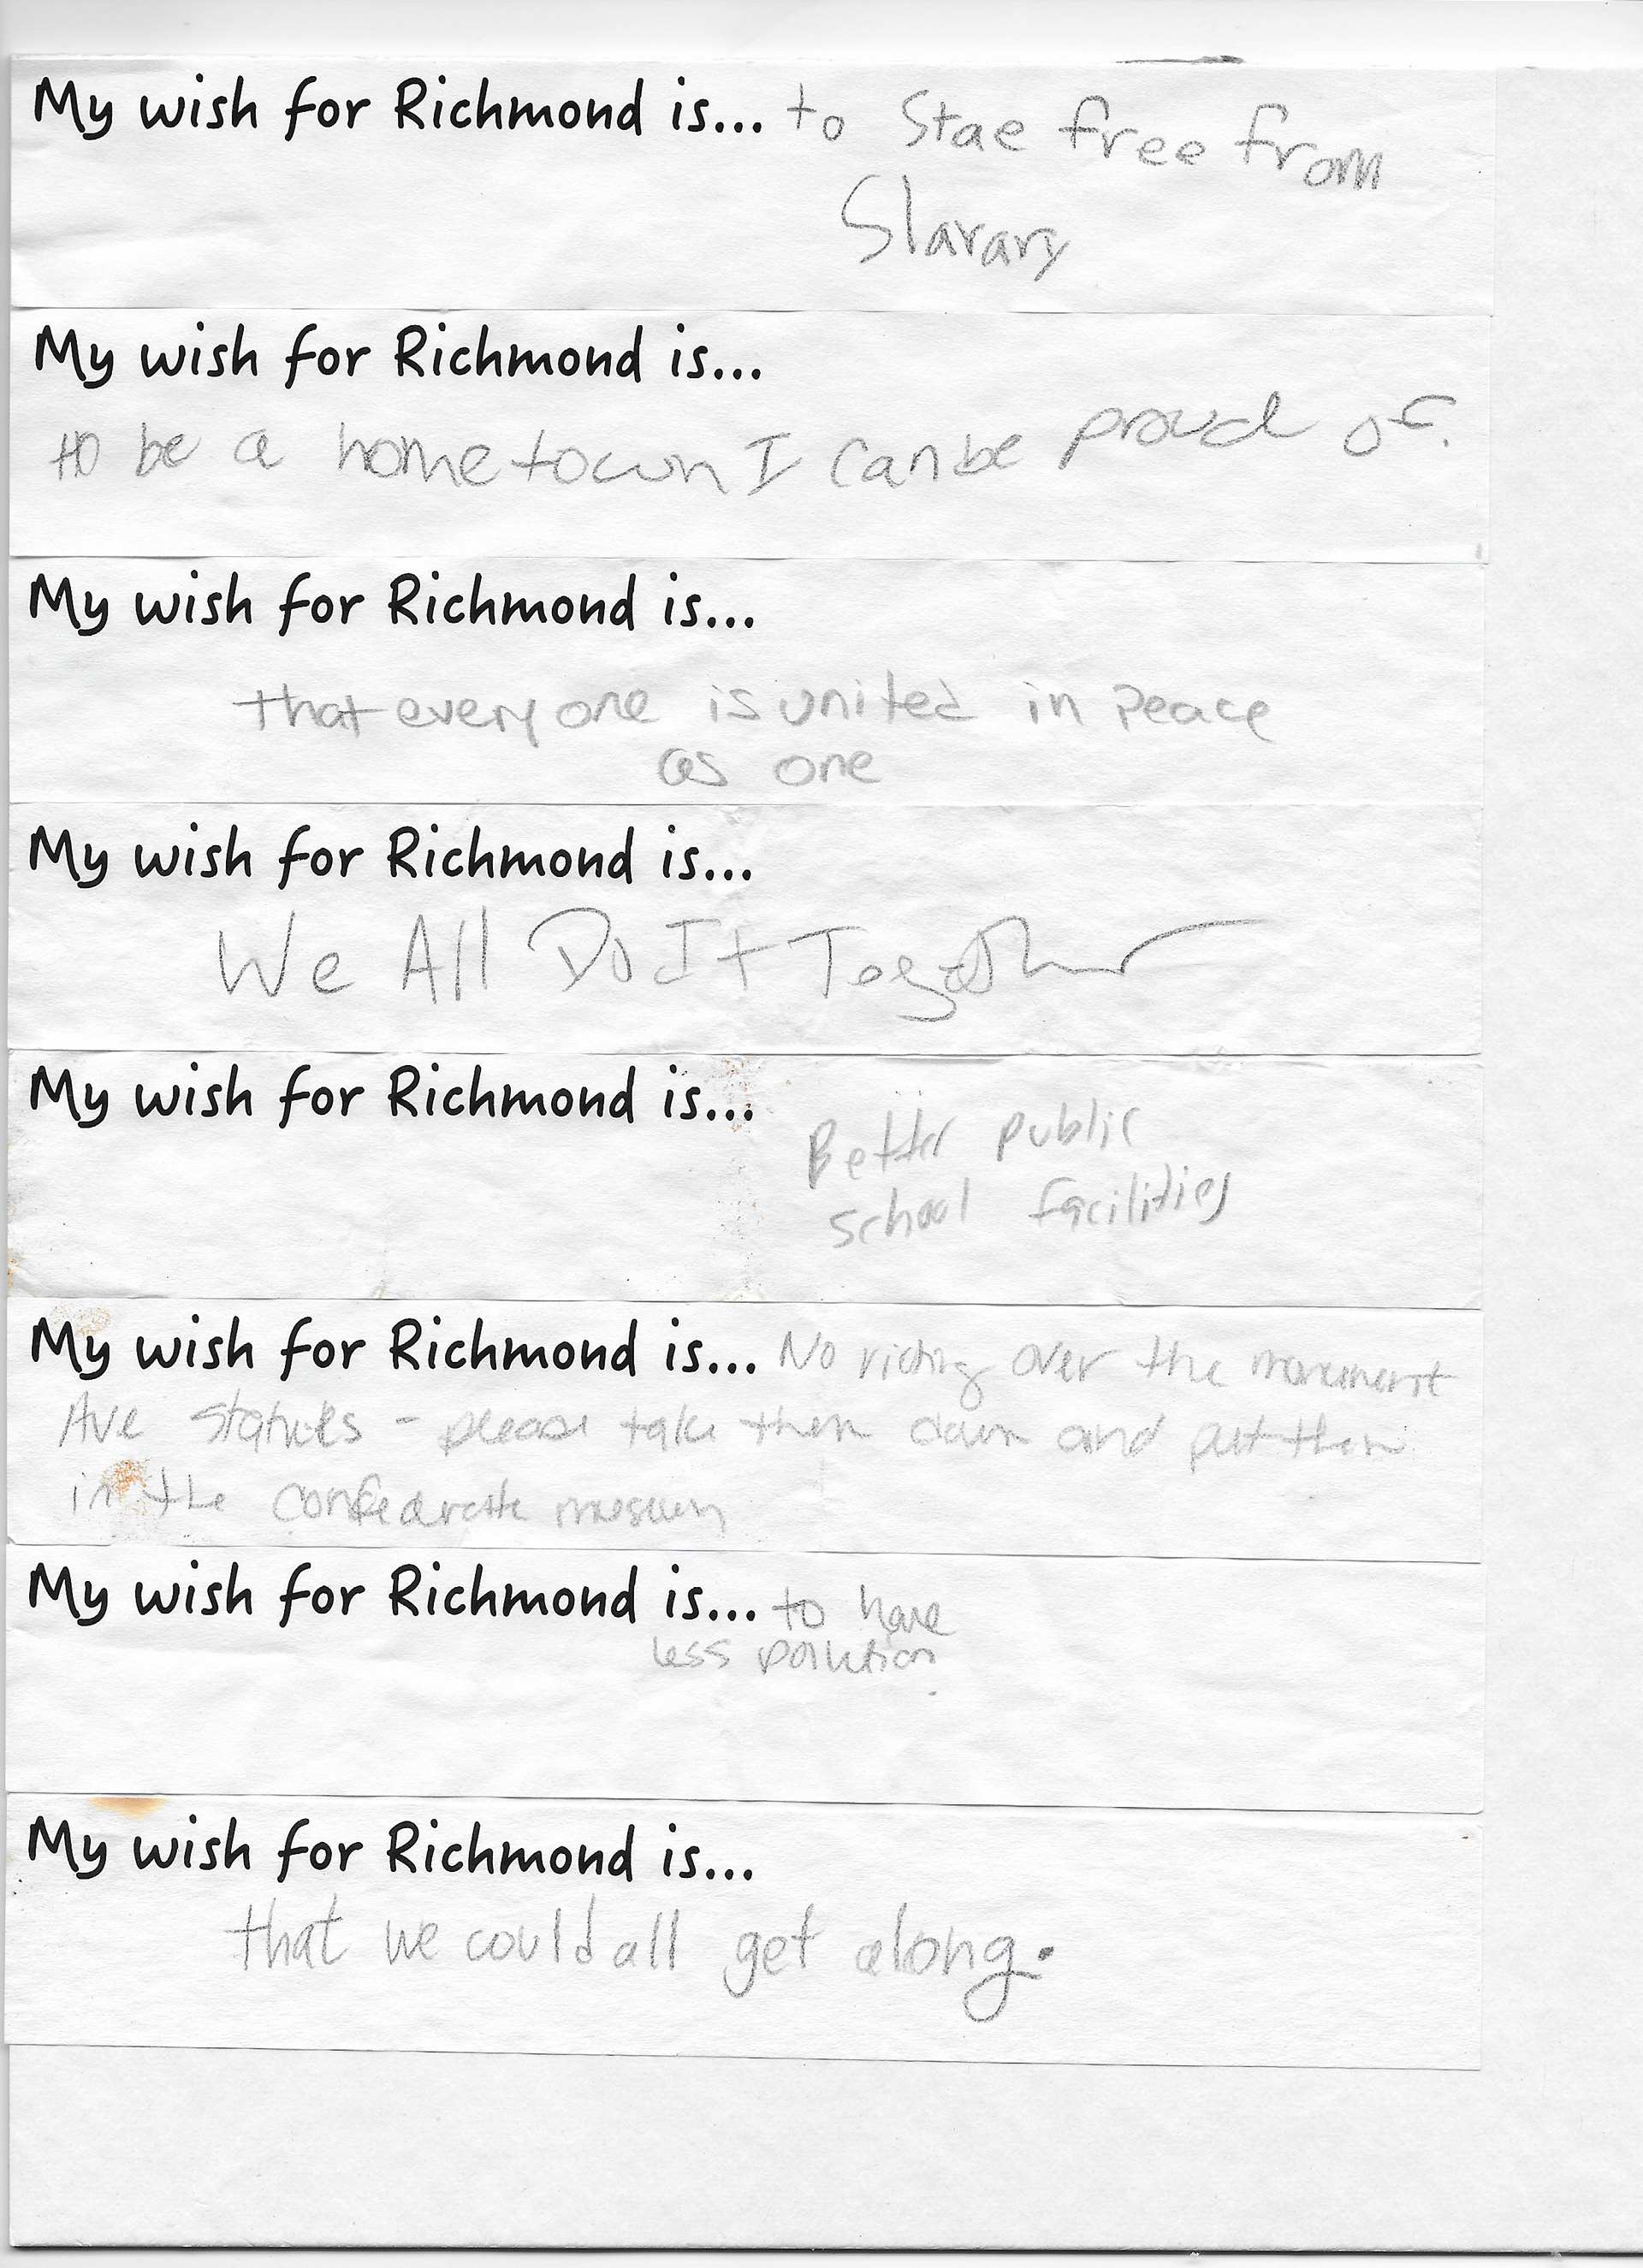 My wish for Richmond is... to Stae free from
Slavary
My wish for Richmond is...
to be a hometown I can be proud of.
My wish for Richmond is...
that everyone is united in peace
as one
My wish for Richmond is...
We All Do It Together
My wish for Richmond is...
Better public
school facilities
My wish for Richmond is... No riding over the monument
Ave statues - please take them down and put them
in the confedarate museum
My wish for Richmond is... to have
less pollution.
My wish for Richmond is...
that we could all get along.